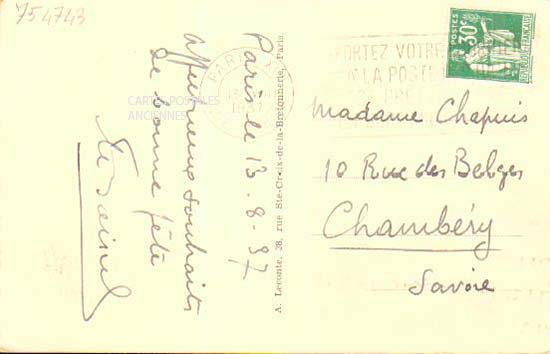 754743
Paris le 13-8-37
Affectueux souhaits
de bonne fête
A. Leconte, 38, rue Ste-Croix-de-la-Bretonnerie, Paris.
CARTES POSTALES
ANCIENNES
PARIS
1937
PORTEZ VOTRE
A LA POSTE
POSTES
30c
Madame Chapuis
10 Rue des Belges
Chambéry
Savoie